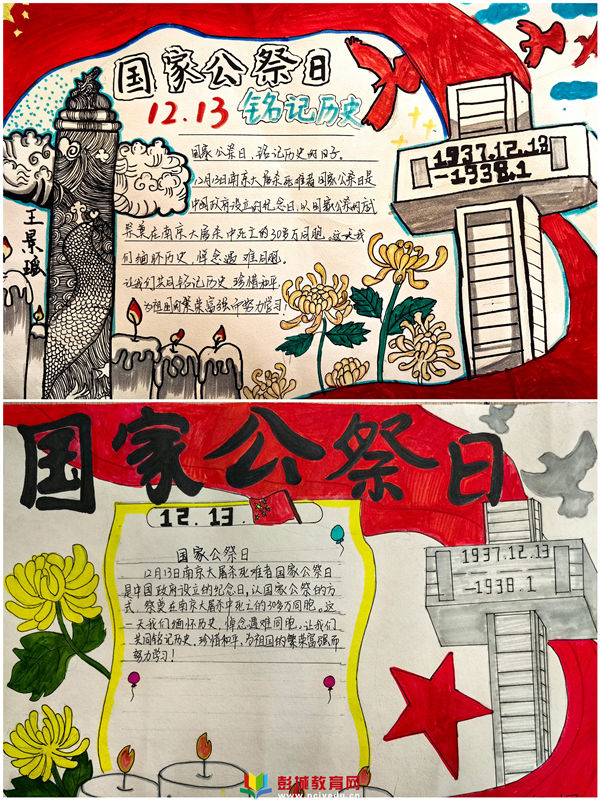 国家公祭日
12.13 铭记历史
国家公祭日,铭记历史的日子。
12月13日南京大屠杀死难者国家公祭日是
中国政府设立的纪念日,以国家公祭的方式
祭奠在南京大屠杀中死亡的30多万同胞。这天我
们缅怀历史,悼念遇难同胞,
让我们共同铭记历史,珍惜和平,
为祖国的繁荣富强而努力学习!
王景瑶
1937.12.13
-1938.1
国家公祭日
12.13.
国家公祭日
12月13日南京大屠杀死难者国家公祭日
是中国政府设立的纪念日,以国家公祭的方
式,祭奠在南京大屠杀中死亡的30多万同胞。这
一天我们缅怀历史,悼念遇难同胞,让我们
共同铭记历史,珍惜和平,为祖国的繁荣富强而
努力学习!
1937.12.13
-1938.1
彭城教育网
www.pcjyedu.cn